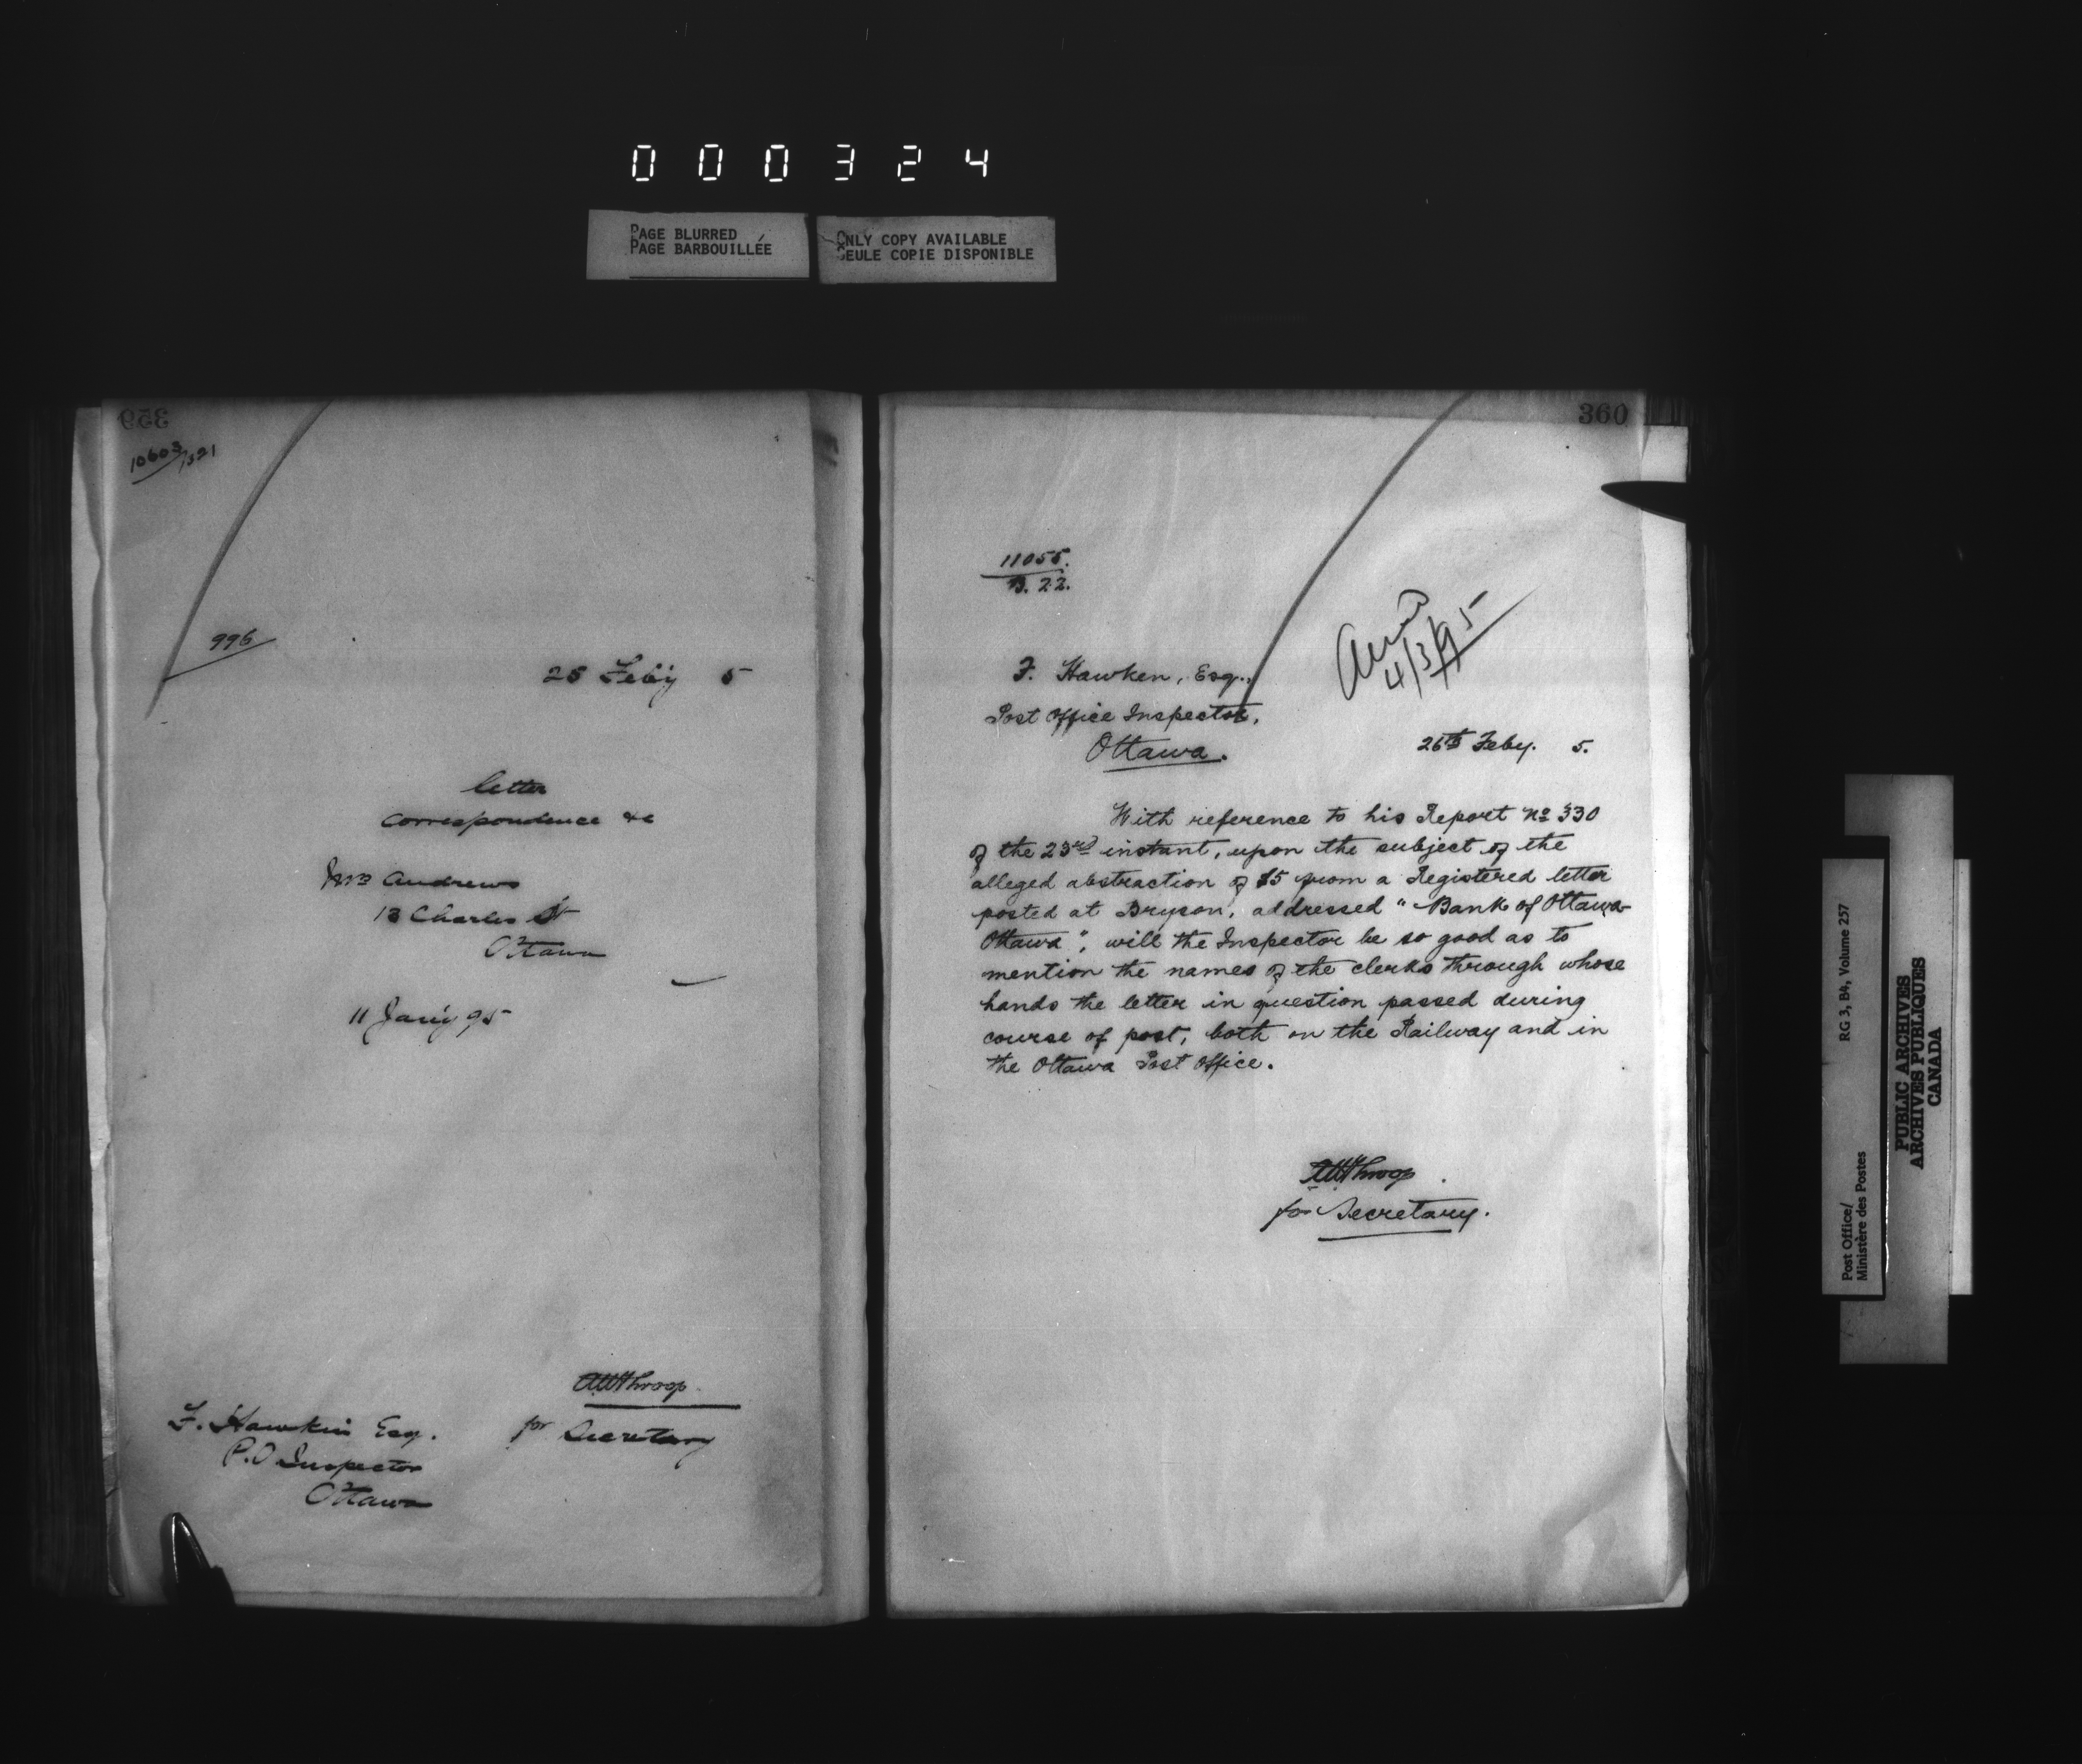 000324
PAGE BLURRED
PAGE BARBOUILLÉE
ONLY COPY AVAILABLE
SEULE COPIE DISPONIBLE
359
10603/1321
996
25 Feby 5
letter
correspondence &c
Mrs Andrews
13 Charles St
Ottawa
11 Jan'y 95
AWThroop
for Secretary
F. Hawkin Esq.
P.O Inspector
Ottawa
360
11055.
B. 22.
Ansd
4/3/95
F. Hawken, Esq.,
Post Office Inspector,
Ottawa.
26th Feby. 5.
With reference to his Report No 330
of the 23rd instant, upon the subject of the
alleged abstraction of $5 from a Registered letter
posted at Bryson, addressed "Bank of Ottawa
Ottawa", will the Inspector be so good as to
mention the names of the clerks through whose
hands the letter in question passed during
course of post, both on the Railway and in
the Ottawa Post Office.
AWThroop
for Secretary.
Post Office/
Ministère des Postes
RG 3, B4, Volume 257
PUBLIC ARCHIVES
ARCHIVES PUBLIQUES
CANADA